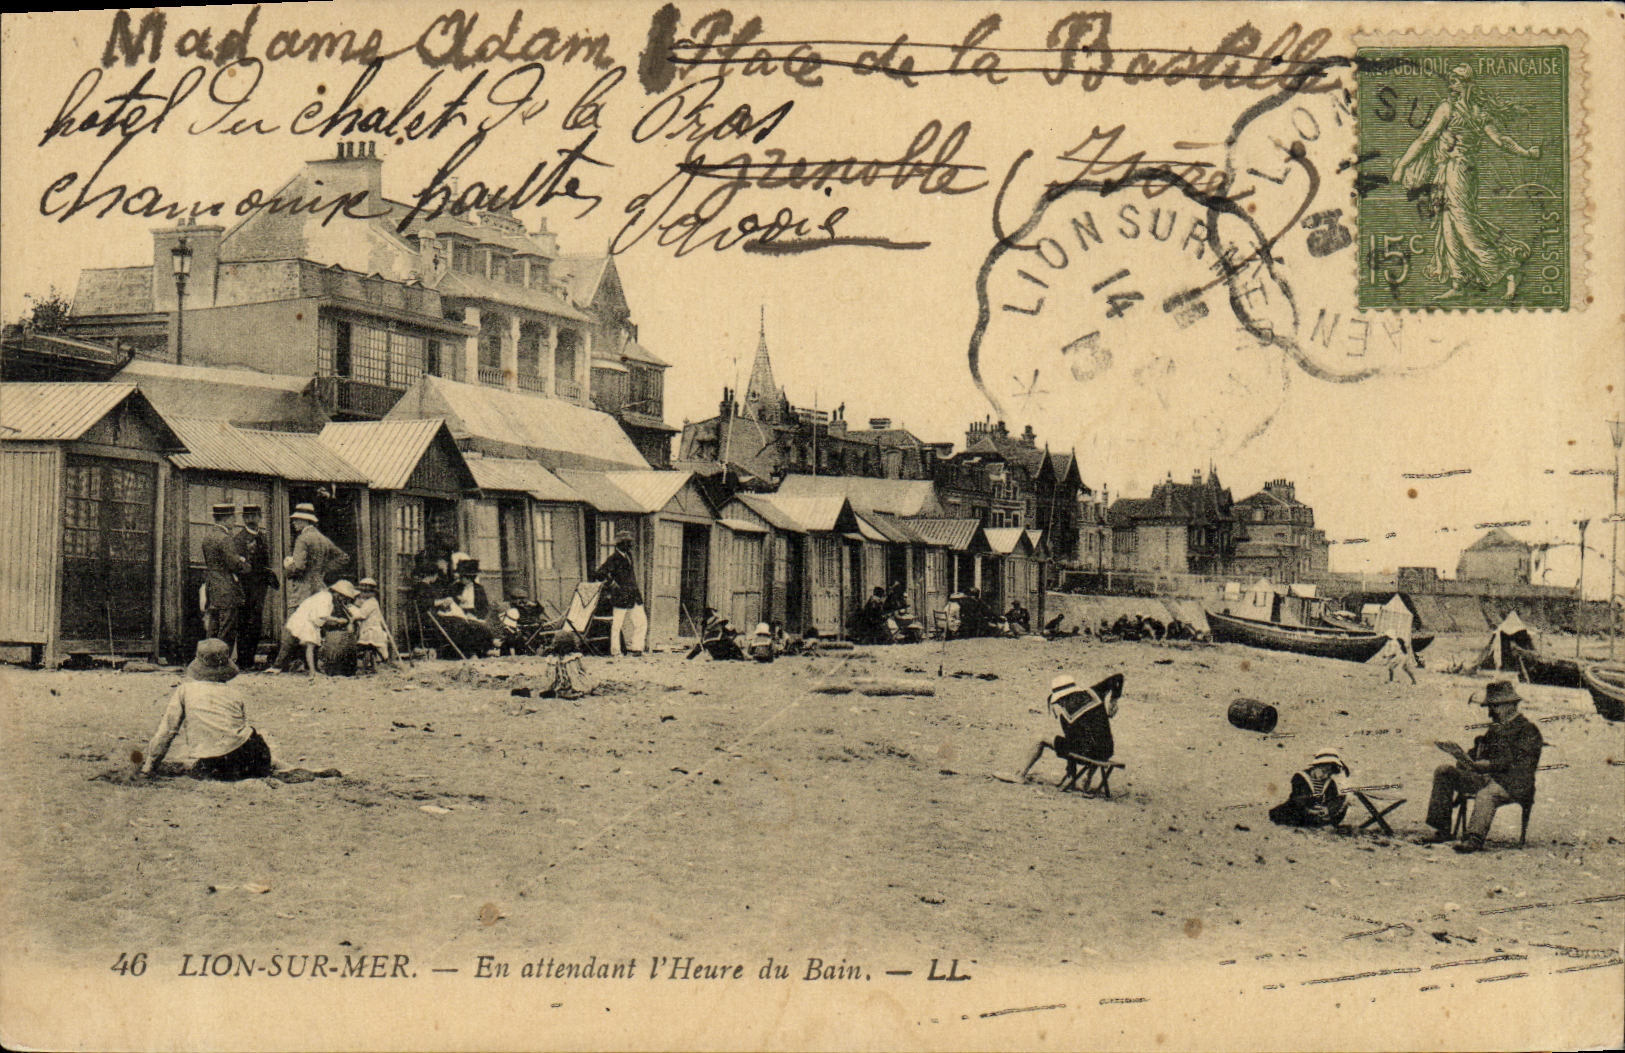 Madame Adam Place de la Bastille
hôtel du chalet de la Praz
Grenoble (Isère)
chamonix haute Savoie
RÉPUBLIQUE FRANÇAISE
15c
POSTES
LION SUR MER
14
LION SUR
14
CAEN
46 LION-SUR-MER. — En attendant l'Heure du Bain. — LL